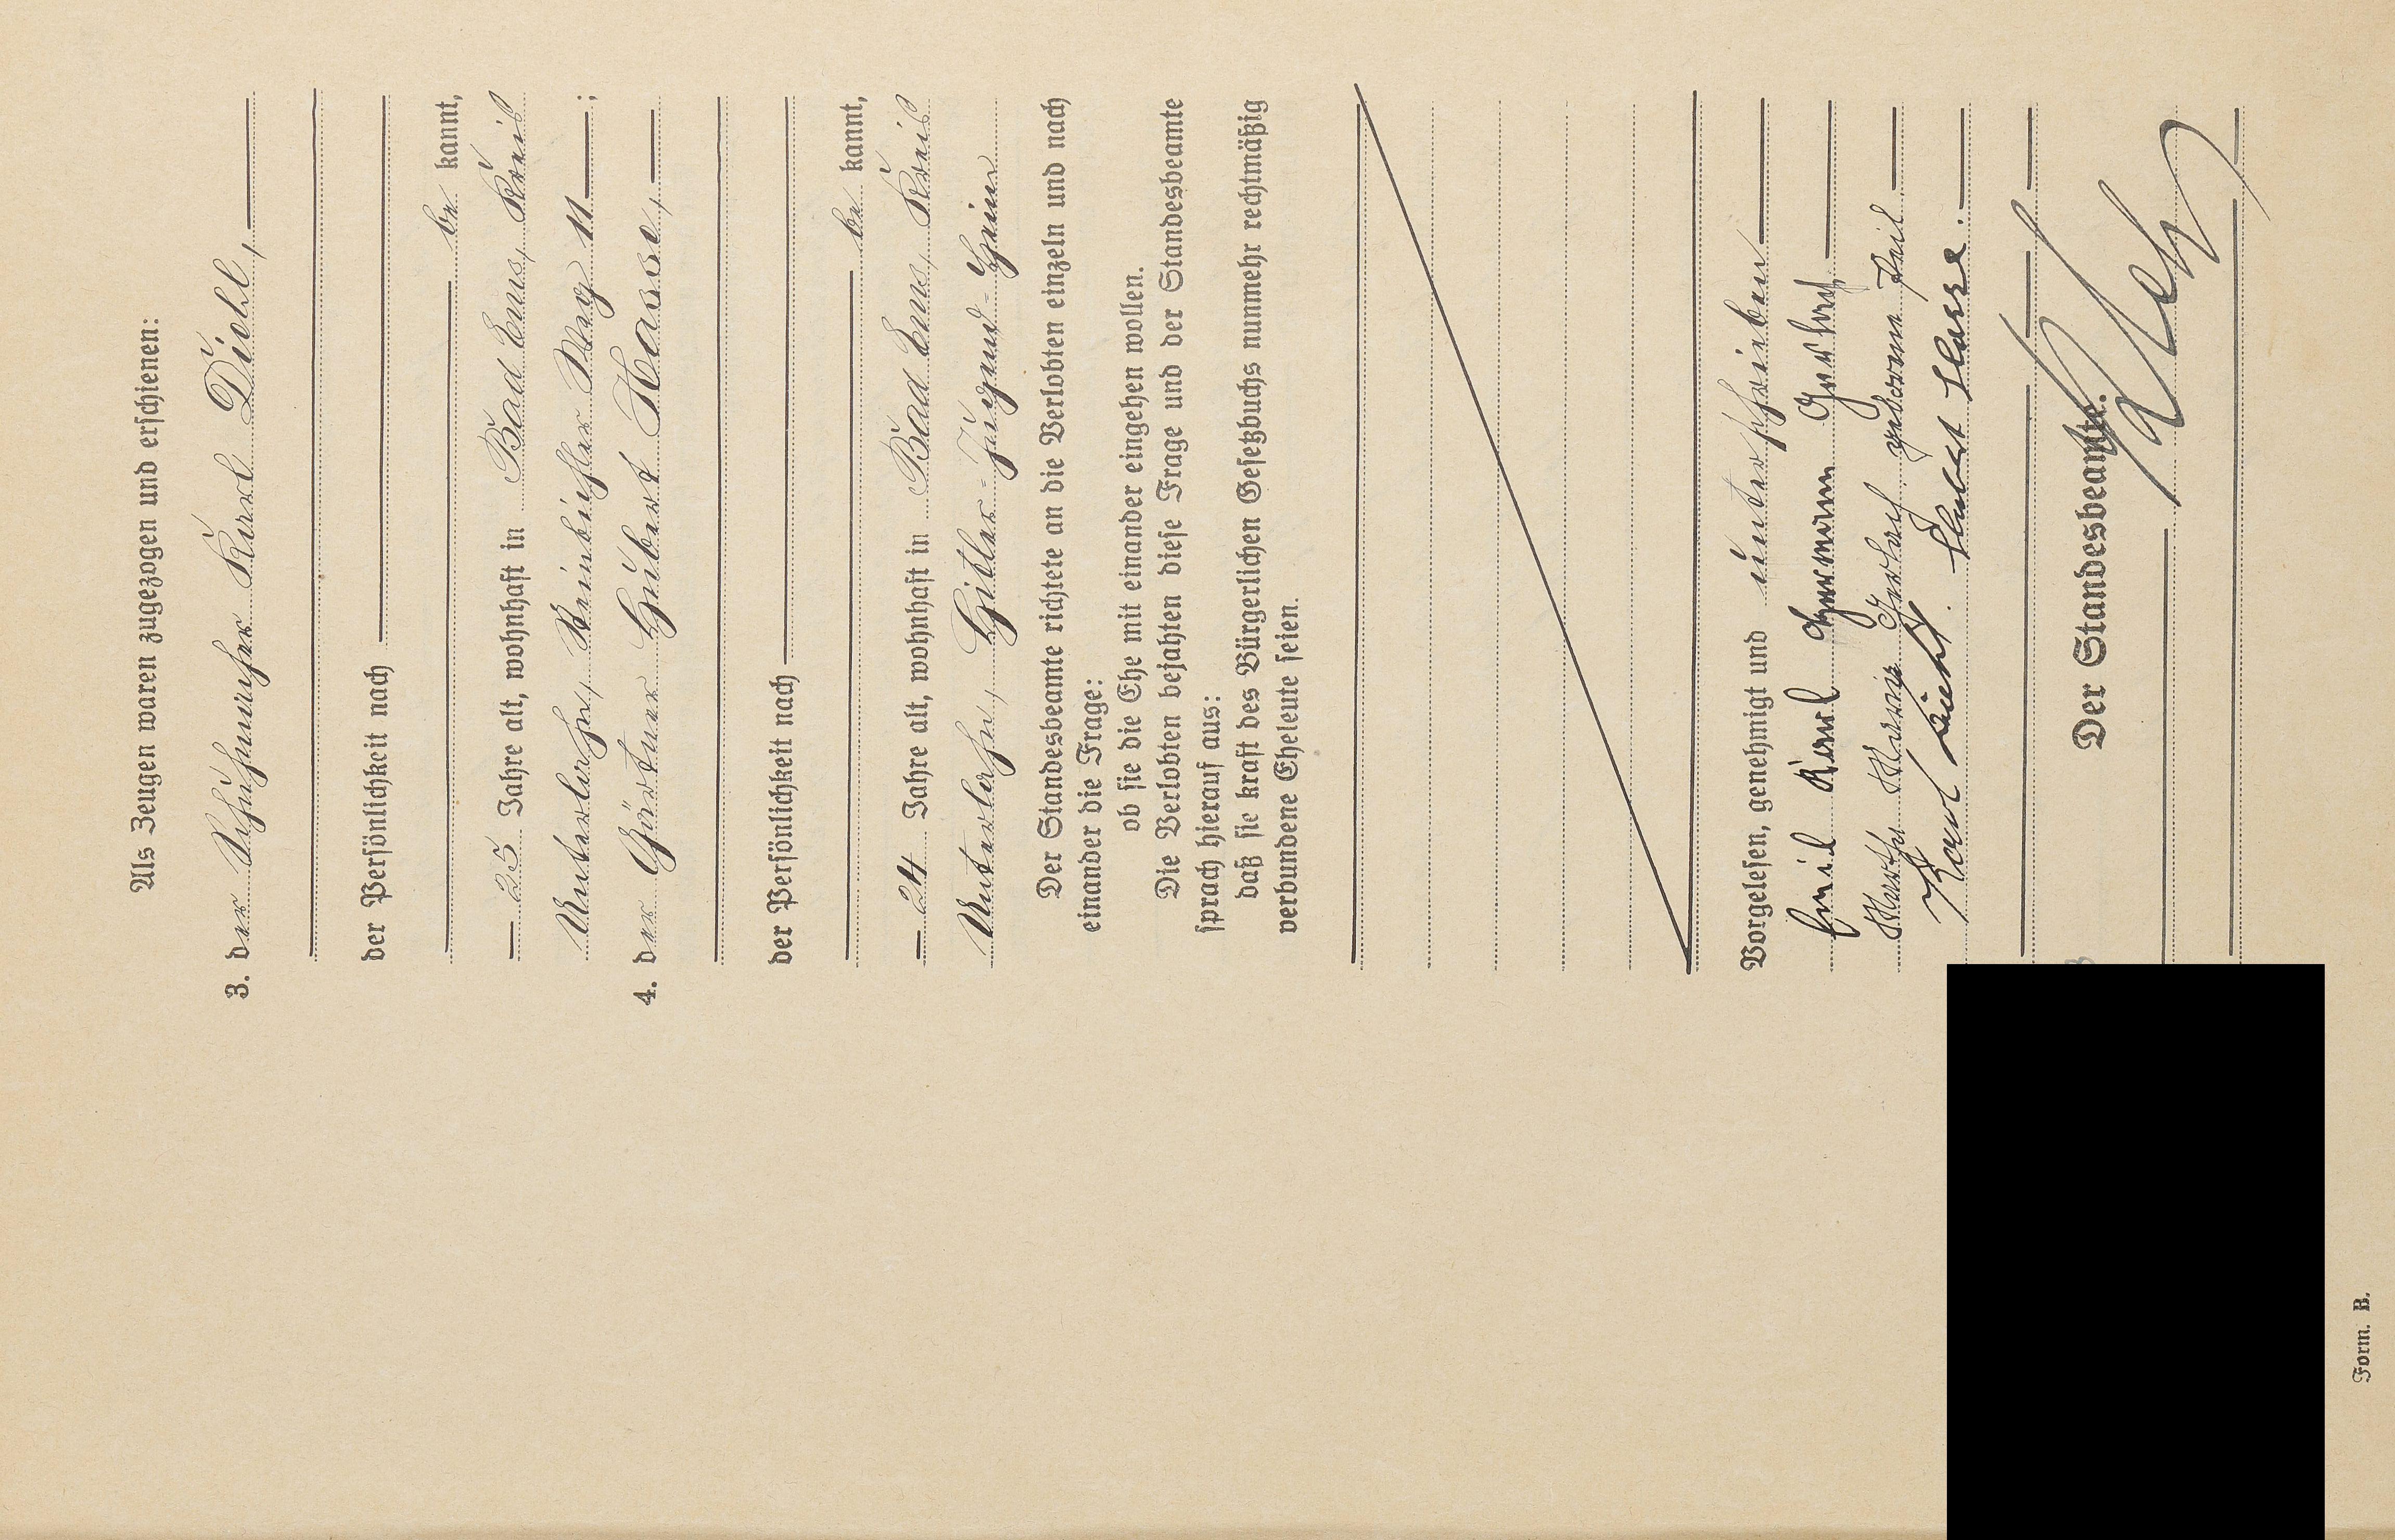 Als Zeugen waren zugezogen und erschienen:
3. der Schuhmacher Karl Diehl,
der Persönlichkeit nach
be kannt,
25 Jahre alt, wohnhaft in Bad Ems, Kreis
Unterlahn, Weg 11;
4. der Gärtner Hubert Hasse,
der Persönlichkeit nach
be kannt,
24 Jahre alt, wohnhaft in Bad Ems, Kreis
Unterlahn, Hitler-Jugend-Heim
Der Standesbeamte richtete an die Verlobten einzeln und nach
einander die Frage:
ob sie die Ehe mit einander eingehen wollen.
Die Verlobten bejahten diese Frage und der Standesbeamte
sprach hierauf aus:
daß sie kraft des Bürgerlichen Gesetzbuchs nunmehr rechtmäßig
verbundene Eheleute seien.
Vorgelesen, genehmigt und unterschrieben
Emil Karl Hermann Gerlach
Martha Maria Gerlach geborene Keil
Karl Diehl. Hubert Hasse.
Der Standesbeamte.
Form. B.